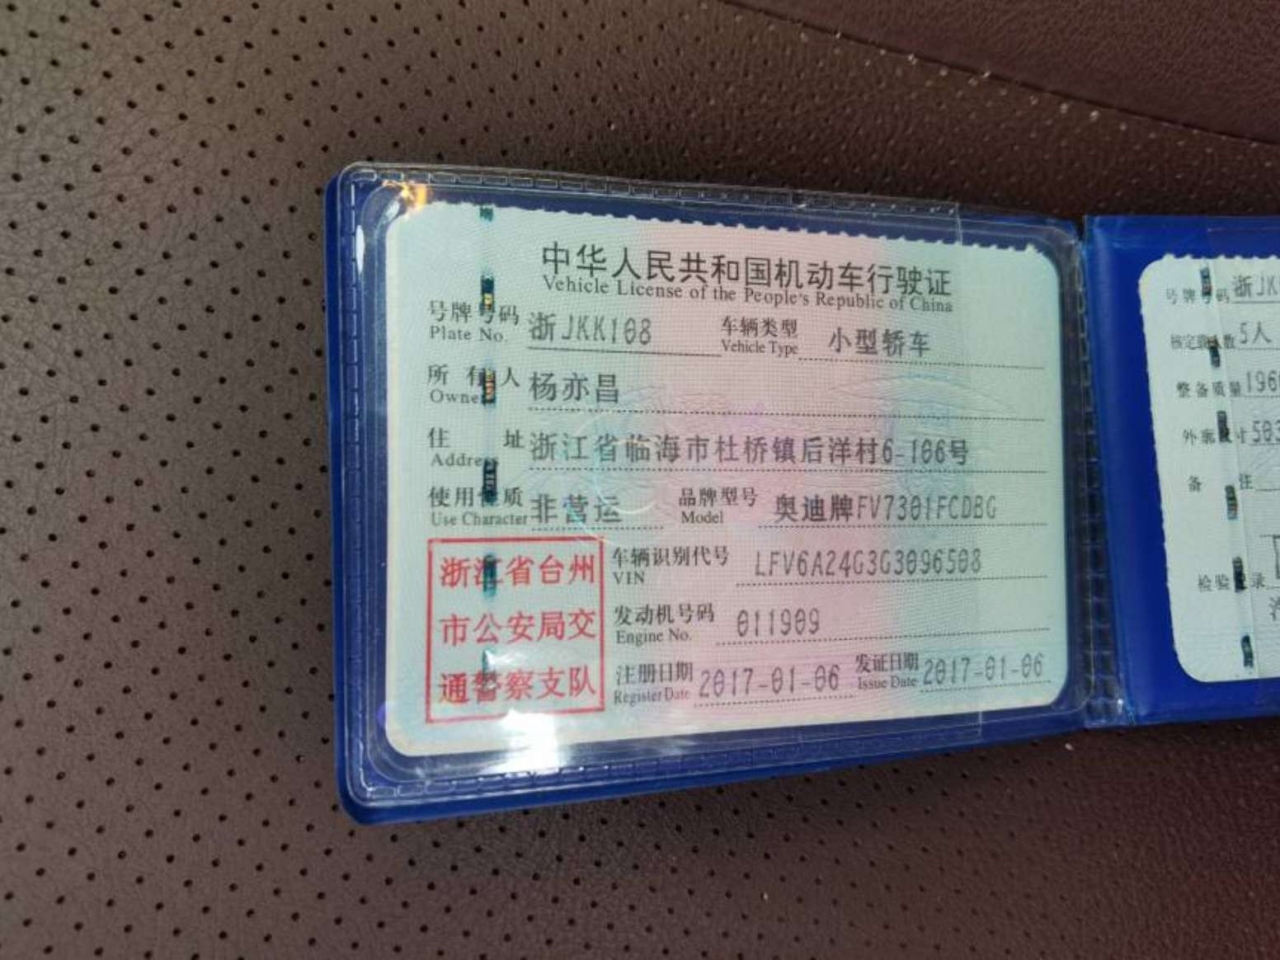 中华人民共和国机动车行驶证
Vehicle License of the People's Republic of China
号牌号码 浙JKK108 车辆类型 小型轿车
Plate No. Vehicle Type
所有人 杨亦昌
Owner
住址 浙江省临海市杜桥镇后洋村6-106号
Address
使用性质 非营运 品牌型号 奥迪牌FV7301FCDBG
Use Character Model
车辆识别代号 LFV6A24G3G3096508
VIN
发动机号码 011909
Engine No.
注册日期 2017-01-06 发证日期 2017-01-06
Register Date Issue Date
浙江省台州
市公安局交
通警察支队
号牌号码 浙JK
核定载人数 5人
整备质量 196
外廓尺寸 503
备注
检验记录